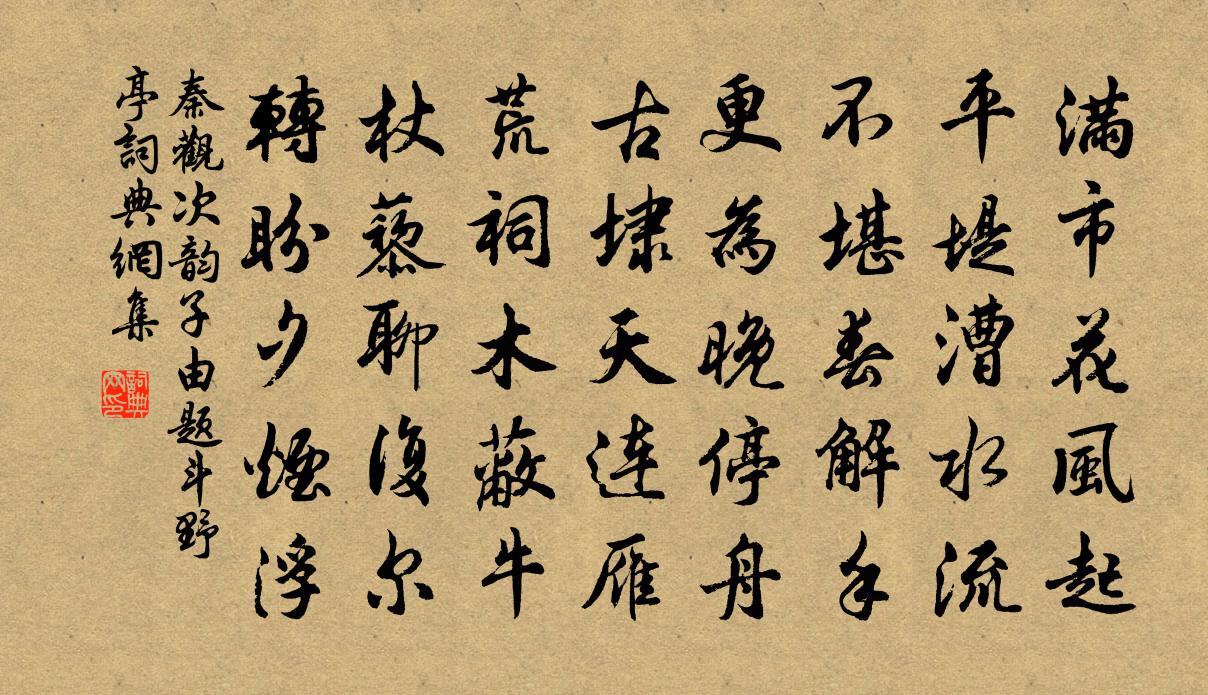 滿市花風起
平堤漕水流
不堪春解手
更為晚停舟
古埭天連雁
荒祠木蔽牛
杖藜聊復尔
轉盼夕煙浮
秦觀次韵子由题斗野
亭詞典網集
詞典網印